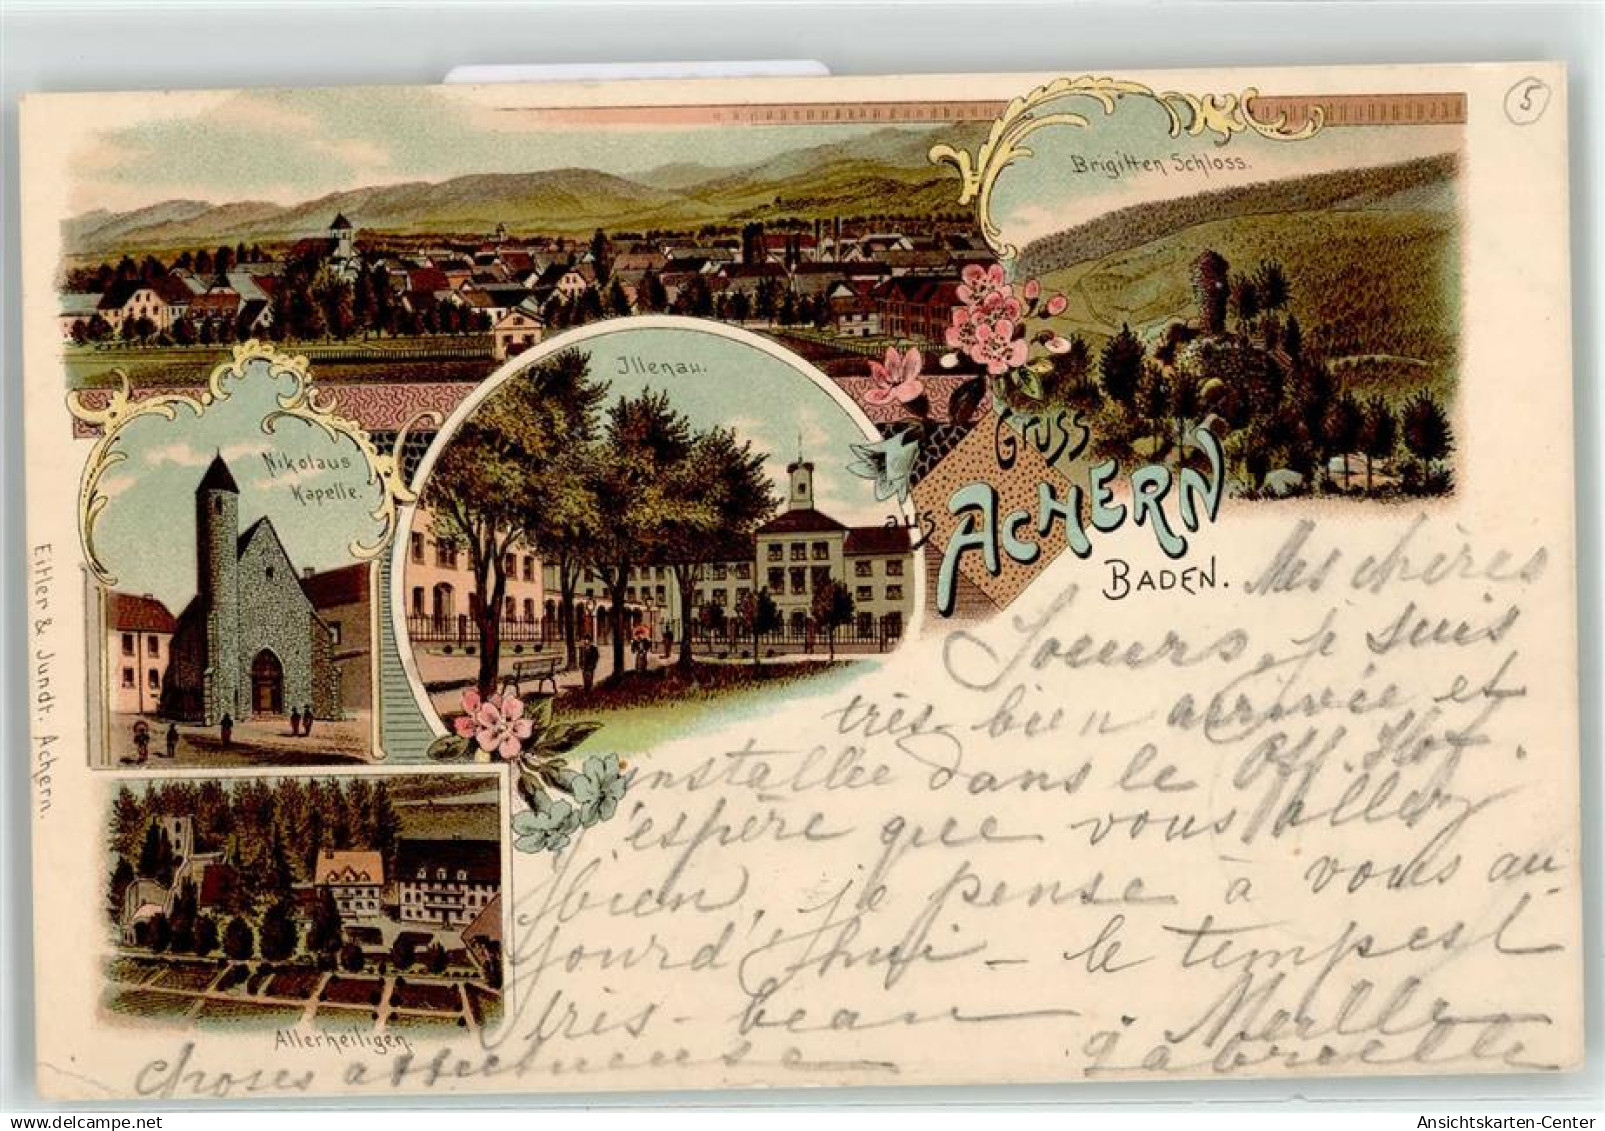 5
Brigitten Schloss.
Illenau.
Nikolaus
Kapelle.
Gruss
aus ACHERN
BADEN.
Eitler & Jundt. Achern.
Allerheiligen.
Mes chères
Soeurs, je suis
très bien arrivée et
installée dans le Hof.
J'espère que vous allez
bien, je pense à vous au
jourd'hui - le temps est
très-beau
Choses affectueuse
Gabrielle
AnsichtsKarten-Center